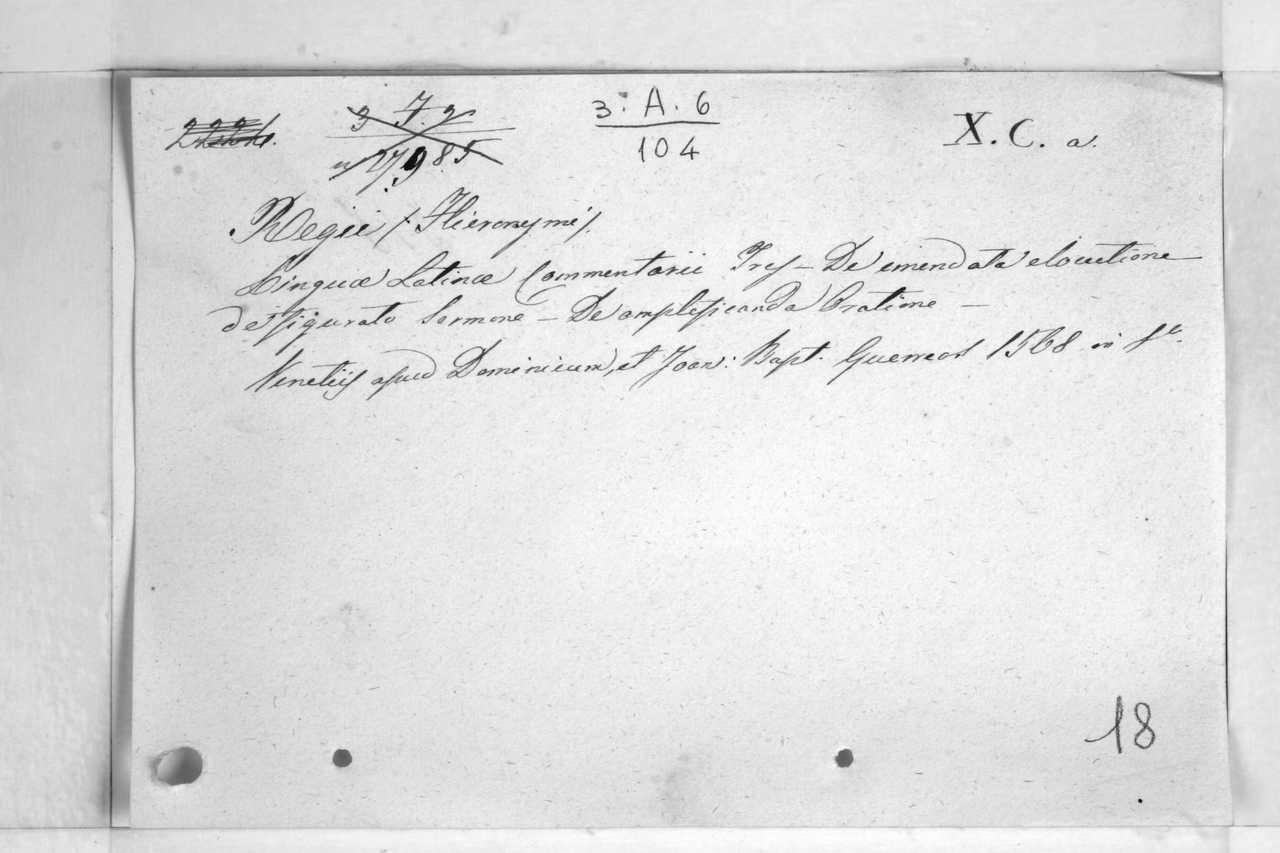 3. A. 6
104
X. C. a.
Regii / Hieronymi /
Linguæ Latinæ Commentarii Tres - De emendata elocutione
de figurato Sermone - De amplificanda Oratione -
Venetiis apud Dominicum, et Joan: Bapt. Guerreos 1568 in 8º.
18